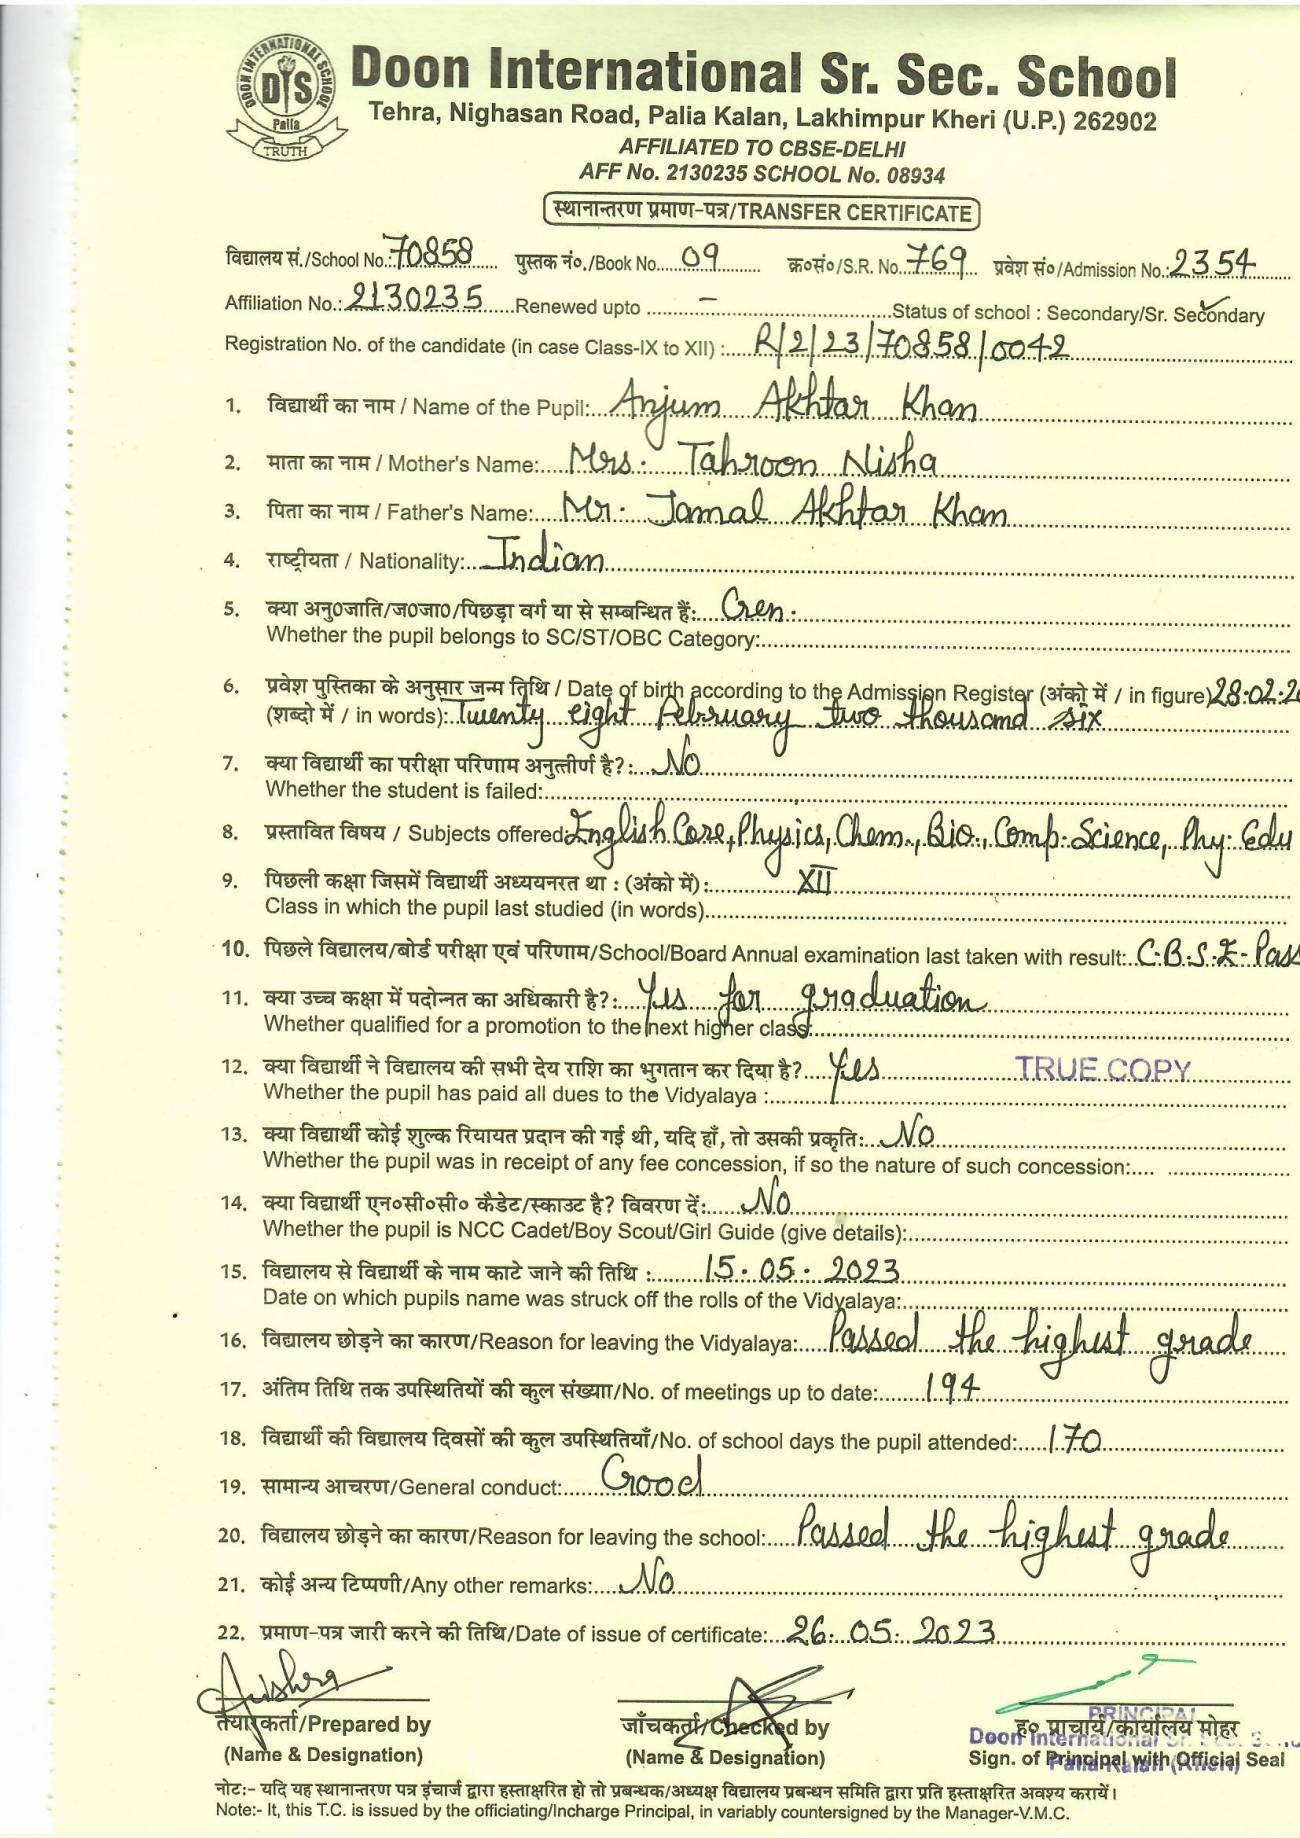 DOON INTERNATIONAL SCHOOL
DIS
Palia
TRUTH
Doon International Sr. Sec. School
Tehra, Nighasan Road, Palia Kalan, Lakhimpur Kheri (U.P.) 262902
AFFILIATED TO CBSE-DELHI
AFF No. 2130235 SCHOOL No. 08934
स्थानान्तरण प्रमाण-पत्र/TRANSFER CERTIFICATE
विद्यालय सं./School No.: 70858 पुस्तक नं०./Book No. 09 क्र०सं०/S.R. No. 769 प्रवेश सं०/Admission No.: 2354
Affiliation No.: 2130235 Renewed upto – Status of school : Secondary/Sr. Secondary
Registration No. of the candidate (in case Class-IX to XII) : R/2/23/70858/0042
1. विद्यार्थी का नाम / Name of the Pupil: Anjum Akhtar Khan
2. माता का नाम / Mother's Name: Mrs. Tahroon Nisha
3. पिता का नाम / Father's Name: Mr. Jamal Akhtar Khan
4. राष्ट्रीयता / Nationality: Indian
5. क्या अनु0जाति/ज0जा0/पिछड़ा वर्ग या से सम्बन्धित हैं: Gen.
Whether the pupil belongs to SC/ST/OBC Category:
6. प्रवेश पुस्तिका के अनुसार जन्म तिथि / Date of birth according to the Admission Register (अंको में / in figure) 28.02.20
(शब्दो में / in words): Twenty eight February two thousand six
7. क्या विद्यार्थी का परीक्षा परिणाम अनुत्तीर्ण है?: No
Whether the student is failed:
8. प्रस्तावित विषय / Subjects offered: English Core, Physics, Chem., Bio., Comp. Science, Phy. Edu
9. पिछली कक्षा जिसमें विद्यार्थी अध्ययनरत था : (अंको में): XII
Class in which the pupil last studied (in words)
10. पिछले विद्यालय/बोर्ड परीक्षा एवं परिणाम/School/Board Annual examination last taken with result: C.B.S.E - Pass
11. क्या उच्च कक्षा में पदोन्नत का अधिकारी है?: Yes for graduation
Whether qualified for a promotion to the next higher class:
12. क्या विद्यार्थी ने विद्यालय की सभी देय राशि का भुगतान कर दिया है? Yes TRUE COPY
Whether the pupil has paid all dues to the Vidyalaya :
13. क्या विद्यार्थी कोई शुल्क रियायत प्रदान की गई थी, यदि हाँ, तो उसकी प्रकृति: No
Whether the pupil was in receipt of any fee concession, if so the nature of such concession:
14. क्या विद्यार्थी एन०सी०सी० कैडेट/स्काउट है? विवरण दें: No
Whether the pupil is NCC Cadet/Boy Scout/Girl Guide (give details):
15. विद्यालय से विद्यार्थी के नाम काटे जाने की तिथि : 15.05.2023
Date on which pupils name was struck off the rolls of the Vidyalaya:
16. विद्यालय छोड़ने का कारण/Reason for leaving the Vidyalaya: Passed the highest grade
17. अंतिम तिथि तक उपस्थितियों की कुल संख्या/No. of meetings up to date: 194
18. विद्यार्थी की विद्यालय दिवसों की कुल उपस्थितियाँ/No. of school days the pupil attended: 170
19. सामान्य आचरण/General conduct: Good
20. विद्यालय छोड़ने का कारण/Reason for leaving the school: Passed the highest grade
21. कोई अन्य टिप्पणी/Any other remarks: No
22. प्रमाण-पत्र जारी करने की तिथि/Date of issue of certificate: 26.05.2023
तैयारकर्ता/Prepared by जाँचकर्ता/Checked by ह० प्राचार्य/कार्यालय मोहर
(Name & Designation) (Name & Designation) Sign. of Principal with Official Seal
PRINCIPAL
Doon International Sr. Sec.
Palia Kalan (Kheri)
नोटः- यदि यह स्थानान्तरण पत्र इंचार्ज द्वारा हस्ताक्षरित हो तो प्रबन्धक/अध्यक्ष विद्यालय प्रबन्धन समिति द्वारा प्रति हस्ताक्षरित अवश्य करायें।
Note:- It, this T.C. is issued by the officiating/Incharge Principal, in variably countersigned by the Manager-V.M.C.